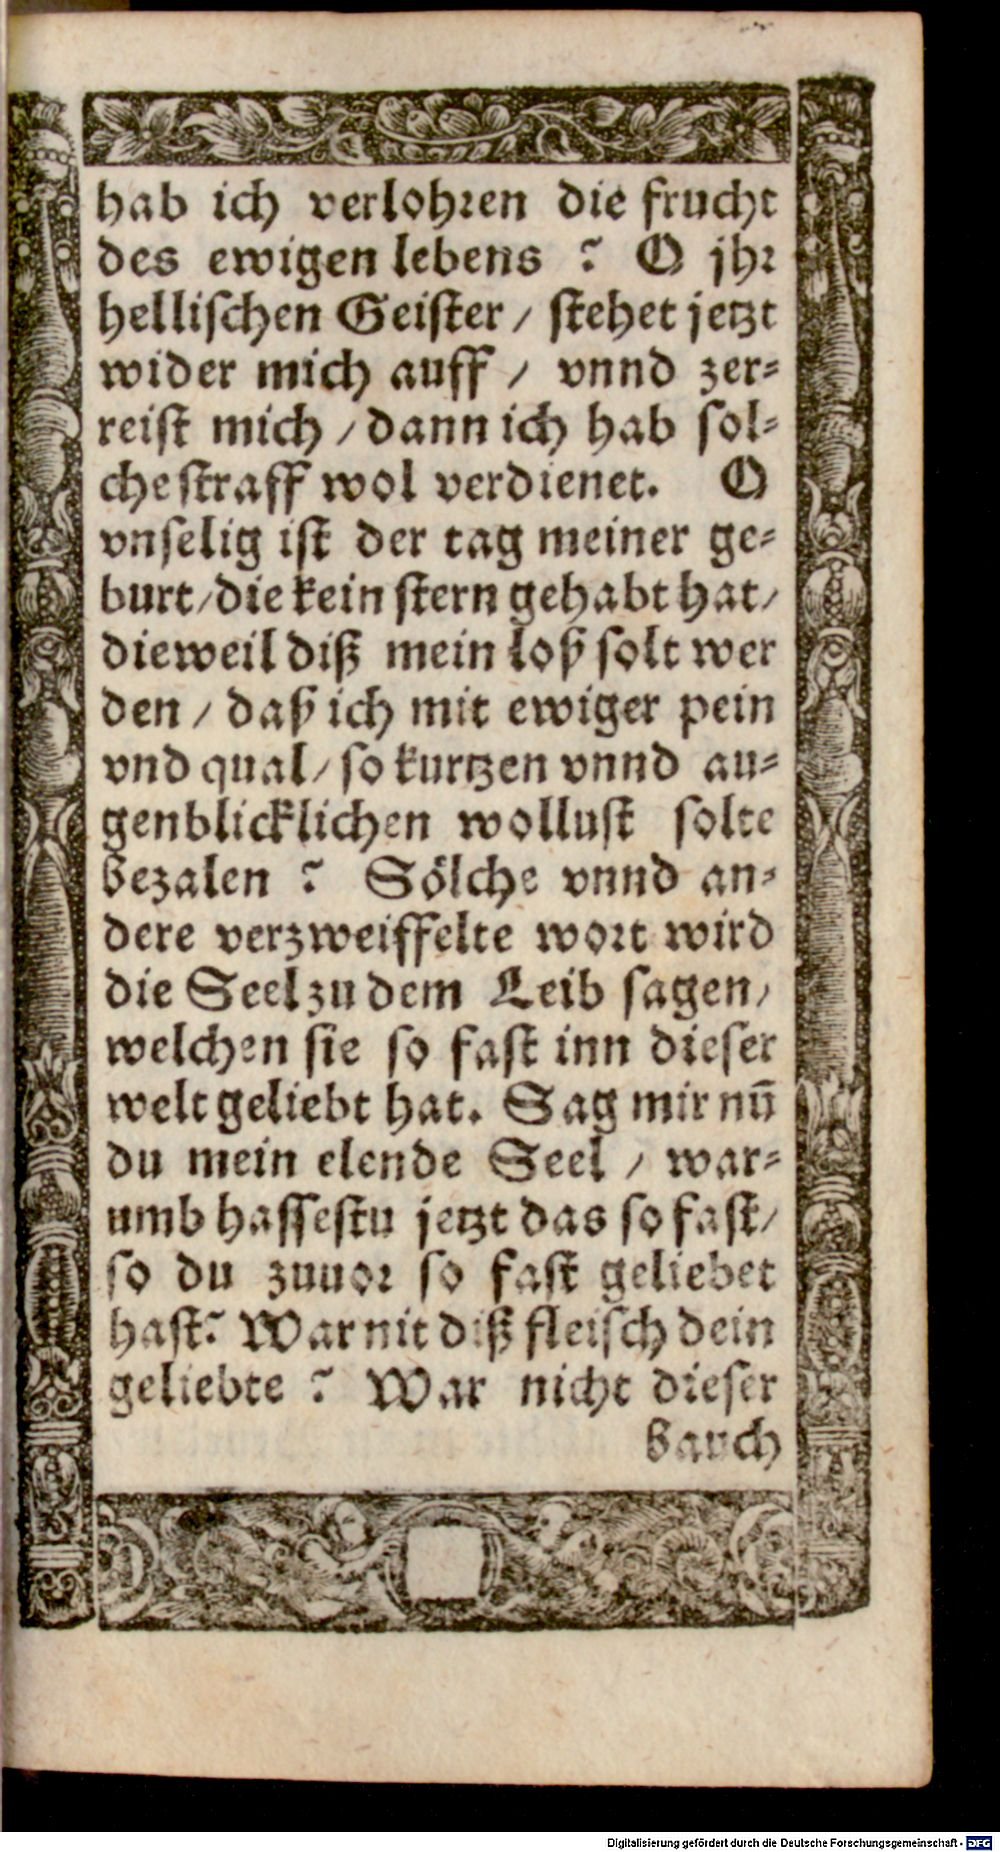 hab ich verlohꝛen die frucht
des ewigen lebens ? O jhꝛ
helliſchen Geiſter / ſtehet jetzt
wider mich auff / vnnd zer⸗
reiſt mich / dann ich hab ſol⸗
che ſtraff wol verdienet. O
vnſelig iſt der tag meiner ge⸗
burt / die kein ſtern gehabt hat /
dieweil diß mein loß ſolt wer
den / daß ich mit ewiger pein
vnd qual / ſo kurtzen vnnd au⸗
genblicklichen wolluſt ſolte
bezalen ? Sölche vnnd an⸗
dere verzweiffelte woꝛt wird
die Seel zu dem Leib ſagen /
welchen ſie ſo faſt inn dieſer
welt geliebt hat. Sag mir nū
du mein elende Seel / war⸗
umb haſſeſtu jetzt das ſo faſt /
ſo du zuuoꝛ ſo faſt geliebet
haſt? War nit diß fleiſch dein
geliebte ? War nicht dieſer
bauch
Digitalisierung gefördert durch die Deutsche Forschungsgemeinschaft - DFG